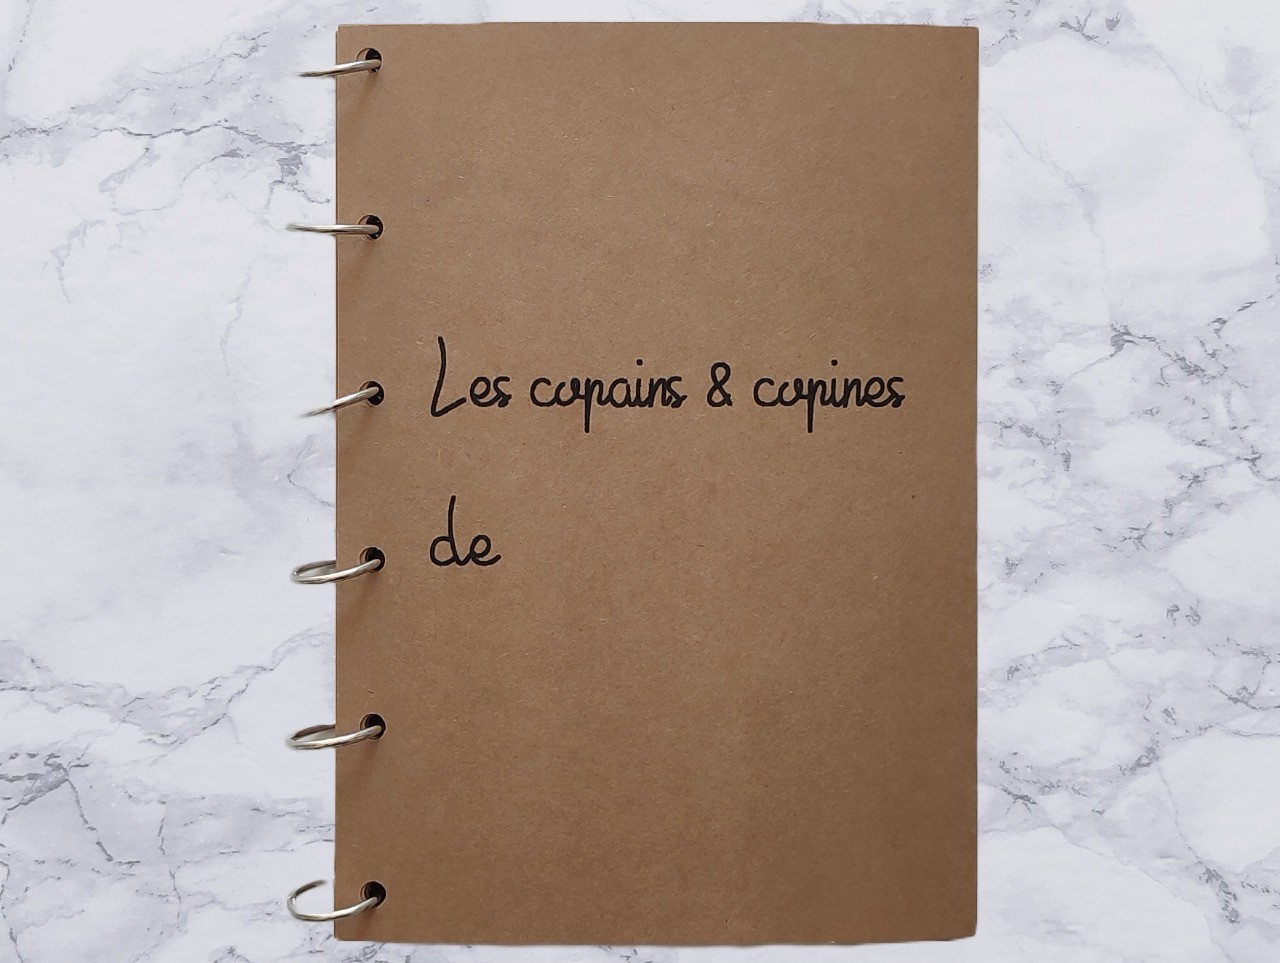 Les copains & copines
de